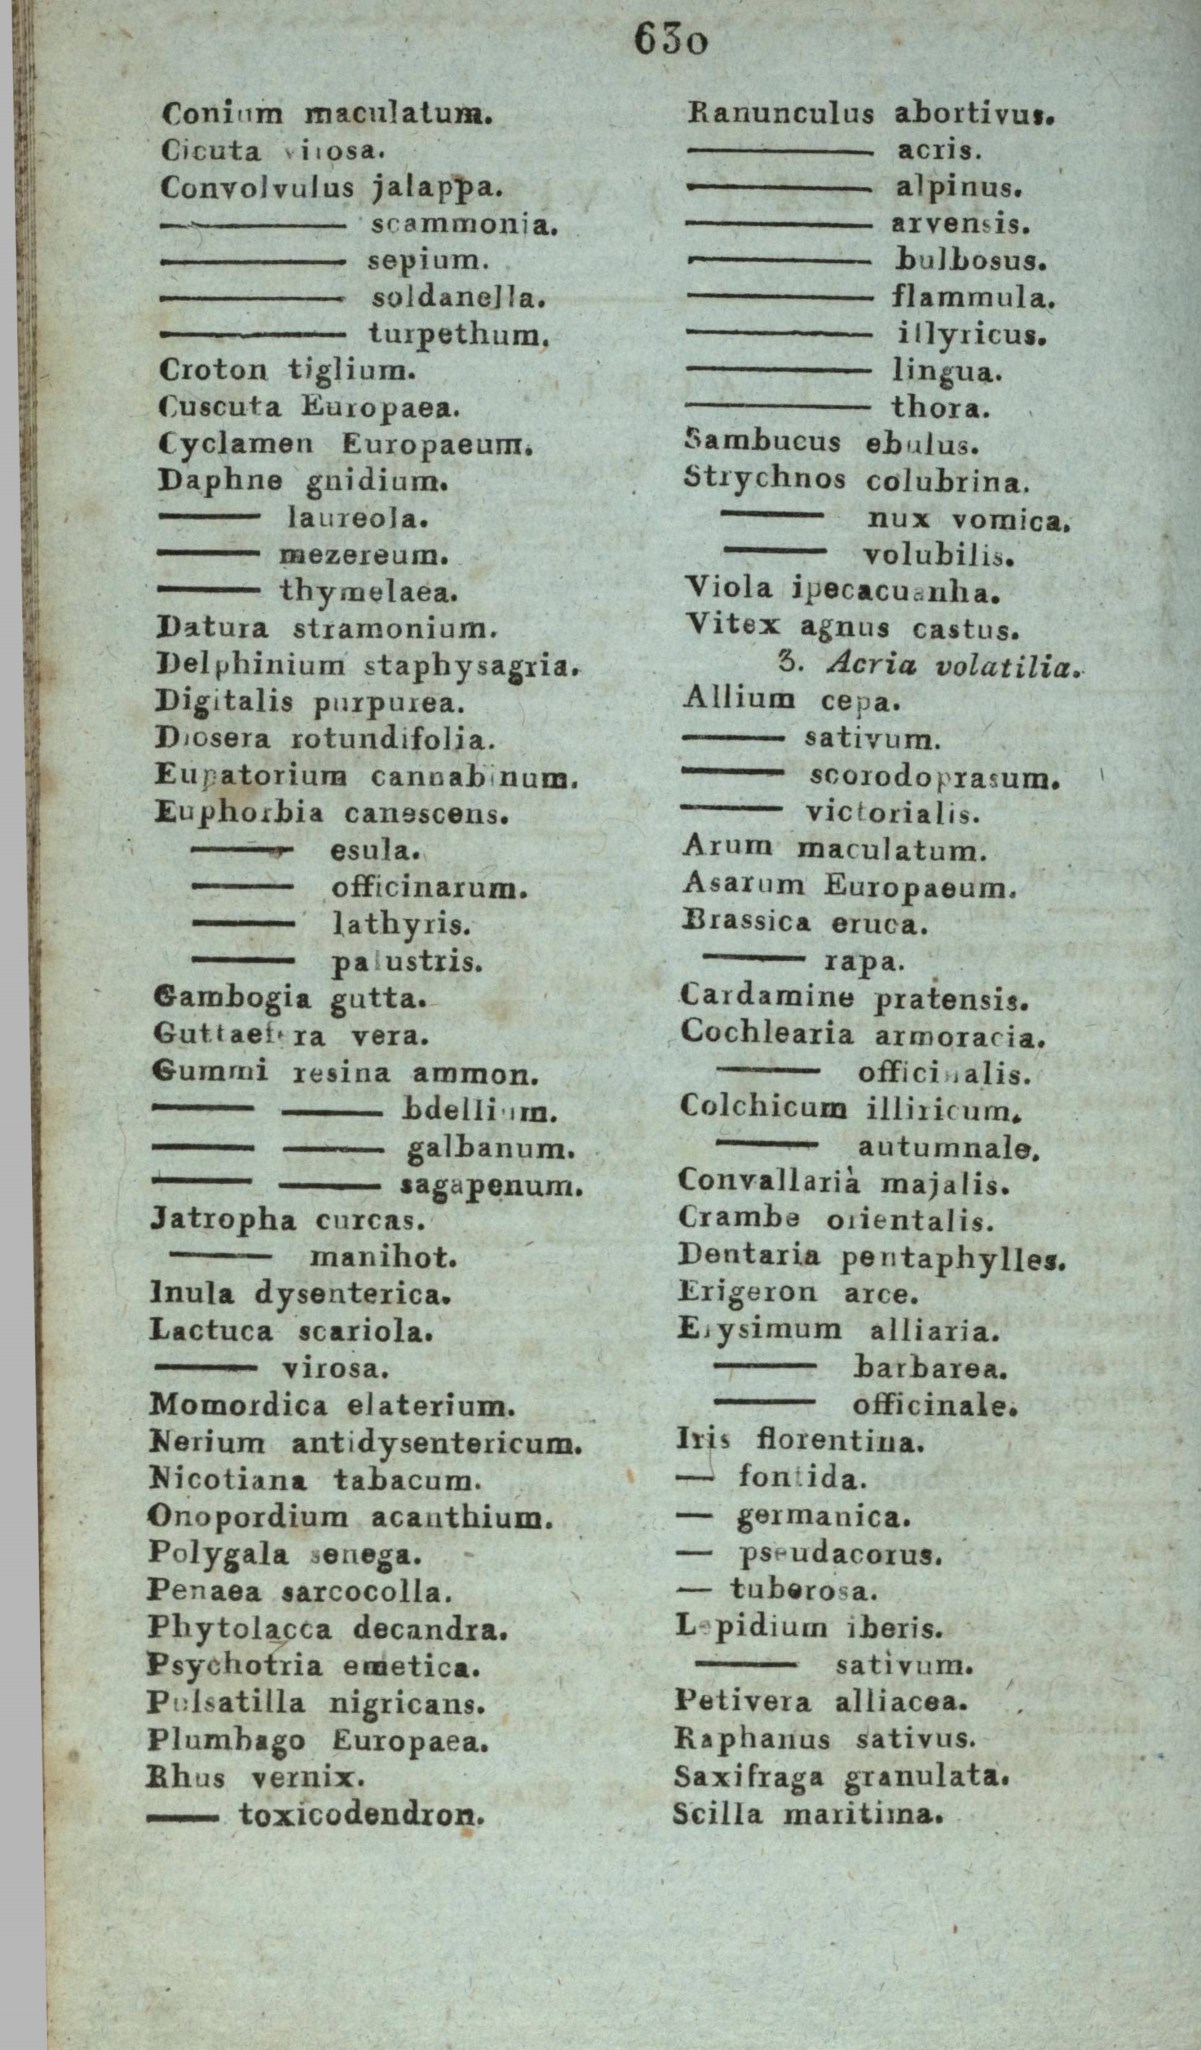 630
Conium maculatum.
Cicuta virosa.
Convolvulus jalappa.
——— scammonia.
——— sepium.
——— soldanella.
——— turpethum.
Croton tiglium.
Cuscuta Europaea.
Cyclamen Europaeum.
Daphne gnidium.
——— laureola.
——— mezereum.
——— thymelaea.
Datura stramonium.
Delphinium staphysagria.
Digitalis purpurea.
Drosera rotundifolia.
Eupatorium cannabinum.
Euphorbia canescens.
——— esula.
——— officinarum.
——— lathyris.
——— palustris.
Gambogia gutta.
Guttaefera vera.
Gummi resina ammon.
——— ——— bdellium.
——— ——— galbanum.
——— ——— sagapenum.
Jatropha curcas.
——— manihot.
Inula dysenterica.
Lactuca scariola.
——— virosa.
Momordica elaterium.
Nerium antidysentericum.
Nicotiana tabacum.
Onopordium acanthium.
Polygala senega.
Penaea sarcocolla.
Phytolacca decandra.
Psychotria emetica.
Pulsatilla nigricans.
Plumbago Europaea.
Rhus vernix.
—— toxicodendron.
Ranunculus abortivus.
——— acris.
——— alpinus.
——— arvensis.
——— bulbosus.
——— flammula.
——— illyricus.
——— lingua.
——— thora.
Sambucus ebulus.
Strychnos colubrina.
——— nux vomica.
——— volubilis.
Viola ipecacuanha.
Vitex agnus castus.
3. Acria volatilia.
Allium cepa.
——— sativum.
——— scorodoprasum.
——— victorialis.
Arum maculatum.
Asarum Europaeum.
Brassica eruca.
——— rapa.
Cardamine pratensis.
Cochlearia armoracia.
——— officinalis.
Colchicum illiricum.
——— autumnale.
Convallarià majalis.
Crambe orientalis.
Dentaria pentaphylles.
Erigeron arce.
Erysimum alliaria.
——— barbarea.
——— officinale.
Iris florentina.
— fontida.
— germanica.
— pseudacorus.
— tuberosa.
Lepidium iberis.
——— sativum.
Petivera alliacea.
Raphanus sativus.
Saxifraga granulata.
Scilla maritima.